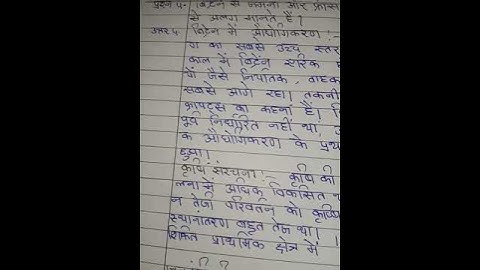 प्रश्न 4. ब्रिटेन से जर्मनी और फ्रांस
से अलग मानते हैं।
उत्तर 4 ब्रिटेन में औद्योगिकरण :-
ण का सबसे उच्च स्तर
काल में ब्रिटेन
जैसे निर्यातक, वाहक
सबसे आगे रहा। तकनी
क्राफ्ट्स का कहना है।
पूर्व निर्धारित नहीं था,
क औद्योगिकरण के प्रथ
हुआ।
कृषि संरचना :- कृषि की
लना में अधिक विकसित
न तेजी परिवर्तन को कृषि
स्थानांतरण बहुत तेज था।
प्राथमिक क्षेत्र में